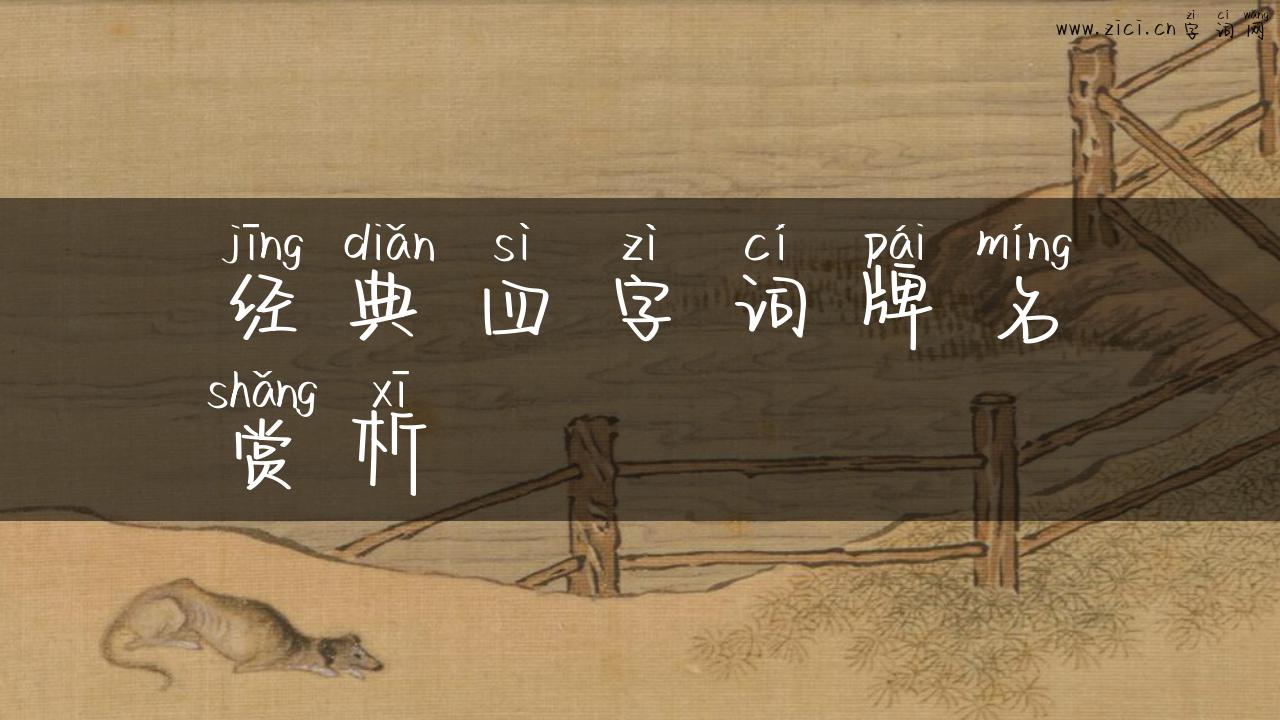 zì cí wǎng
www.zici.cn 字词网
jīng diǎn sì zì cí pái míng
经典四字词牌名
shǎng xī
赏析